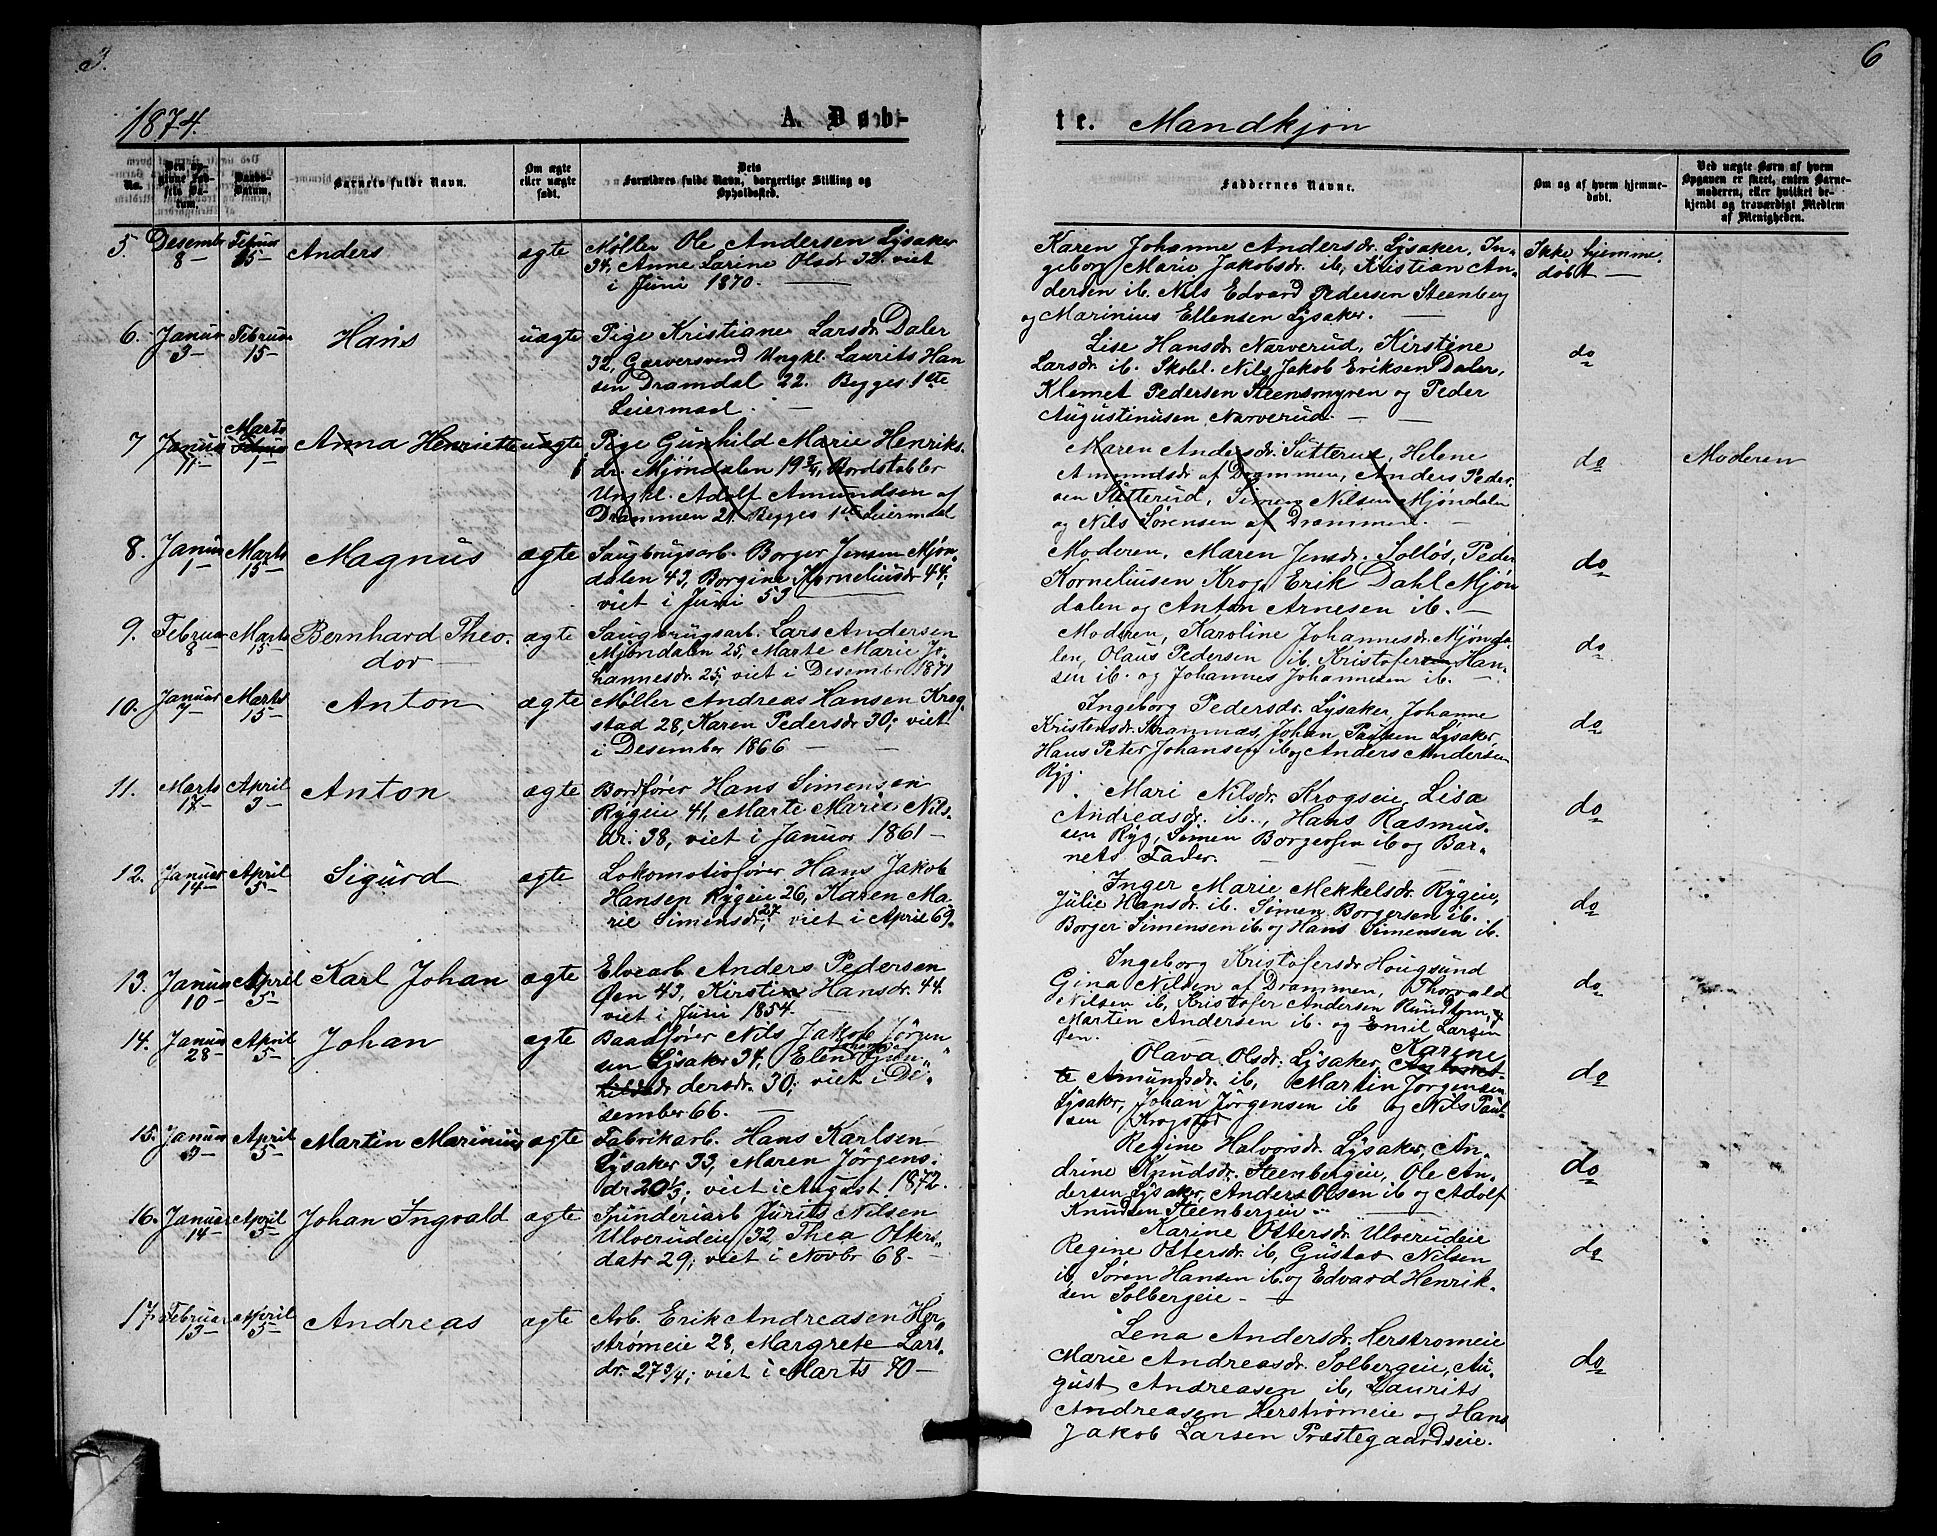 3.
6
1874.
A. Døb-
te. Mandkjøn
No.
Barnets fulde Navn.
Om ægte eller uægte født.
Forældres fulde Navn, borgerlige Stilling og Opholdssted.
Faddernes Navne.
Om og af hvem hjemme-
døbt.
Ved uægte Børn af hvem
Opgaven er skeet, enten Barne-
moderen, eller hvilket be-
kjendt og troværdigt Medlem
af Menigheden.
5. Desembr 8 Februar 15 Anders ægte Møller Ole Andersen Lysaker
34, Anne Larine Olsdr. 32. viet
i Juni 1870.
Karen Johanne Andersdr. Lysaker, In-
geborg Marie Jakobsdr. ib, Kristian An-
dersen ib. Nils Edvard Pedersen Steenberg
og Marinius Ellensen Lysaker.
Ikke hjemme-
døbt
6. Januar 3 Februar 15 Hans uægte Pige Kristiane Larsdr. Daler
32, Garversvend Ungkl. Laurits Han
sen Dramdal 22. Begges 1ste
Leiermaal.
Lise Hansdr. Narverud, Kirstine
Larsdr. ib. Skobl. Nils Jakob Eriksen Daler,
Klemet Pedersen Steensmyren og Peder
Augustinusen Narverud.
do
7 Januar 11 Marts 1 Anna Henriette uægte Pige Gunhild Marie Henriks-
dr. Mjøndalen 19 3/4, Bordstabler
Ungkl. Adolf Amundsen af
Drammen 21. Begges 1ste Leiermaal
Maren Andersdr. Sætterud, Helene
Amundsdr. af Drammen, Anders Peder-
sen Sætterud, Simen Nilsen Mjøndalen
og Nils Sørensen af Drammen.
do
Moderen
8. Januar 1 Marts 15 Magnus ægte Saugbrugsarb. Borger Jensen Mjøn-
dalen 43, Borgine Korneliusdr. 44,
viet i Juni 53
Moderen, Maren Jensdr. Solløs, Peder
Korneliusen Krog, Erik Dahl Mjøn
dalen og Anton Arnesen ib.
do
9. Februar 8 Marts 15 Bernhard Theo-
dor ægte Saugbrugsarb. Lars Andersen
Mjøndalen 25, Marte Marie Jo-
hannesdr. 25, viet i Desember 1871
Moderen, Karoline Johannesdr. Mjønda-
len, Olaus Pedersen ib. Kristofer Han-
sen ib. og Johannes Johannesen ib.
do
10. Januar 7 Marts 15 Anton ægte Møller Andreas Hansen Krog
stad 28, Karen Pedersdr. 30, viet
i Desember 1866
Ingeborg Pedersdr. Lysaker, Johanne
Kristensdr. Strannæs, Johan Paulsen Lysaker,
Hans Peter Johansen ib og Anders Andersen
Ryg.
do
11. Marts 17 April 3 Anton ægte Bordfører Hans Simensen
Rygeie 41, Marte Marie Nils-
dr. 38, viet i Januar 1861
Mari Nilsdr. Krogseie, Lisa
Andreasdr. ib., Hans Rasmus-
sen Ryg, Simen Borgersen ib og Bar-
nets Fader.
do
12. Januar 14 April 5 Sigurd ægte Lokomotivfører Hans Jakob
Hansen Rygeie 26, Karen Ma-
rie Simensdr. 27, viet i April 69.
Inger Marie Mekkelsdr. Rygeie,
Julie Hansdr. ib. Simen Borgersen ib.
Borger Simensen ib. og Hans Simensen ib.
do
13. Januar 10 April 5 Karl Johan ægte Elvearb. Anders Pedersen
Øen 43, Kirstine Hansdr. 44.
viet i Juni 1854.
Ingeborg Kristofersdr. Hougsund
Gina Nilsen af Drammen, Thorvald
Nilsen ib, Kristofer Andersen
Martin Andersen ib. og Emil Larsen
Øen.
do
14. Januar 28 April 5 Johan ægte Baadfører Nils Jakob Jørgen
sen Lysaker 34, Elen
dersdr. 30, viet i De-
sember 66.
Olava Olsdr. Lysaker, Karine
Amundsdr. ib, Martin Jørgensen
Lysaker, Johan Jørgensen ib og Nils Paul-
sen Krogstad
do
15. Januar 3 April 5 Martin Marinius ægte Fabrikarb. Hans Karlsen
Lysaker 33, Maren Jørgens-
dr 20 1/3, viet i August 1872.
Regine Halvorsdr. Lysaker, An-
drine Knudsdr. Steenbergeie, Ole An-
dersen Lysaker, Anders Olsen ib og Adolf
Knudsen Steenbergeie
do
16. Januar 14 April 5 Johan Ingvald ægte Spinderiarb Jurits Nilsen
Ulverudeie 32, Thea Otters-
datr 29, viet i Novbr 68.
Karine Ottersdr. Ulverudeie
Regine Ottersdr. ib, Gustav Nilsen
ib, Søren Hansen ib. og Edvard Henrik-
sen Solbergeie
do
17. Februar 13 April 5 Andreas ægte Arb. Erik Andreasen Her-
strømeie 28, Margrete Lars-
dr. 27 3/4, viet i Marts 70
Lena Andersdr. Herstrømeie
Marie Andreasdr. Solbergeie, Au-
gust Andreasen ib, Laurits
Andreasen Herstrømeie og Hans
Jakob Larsen Præstegaardseie.
do